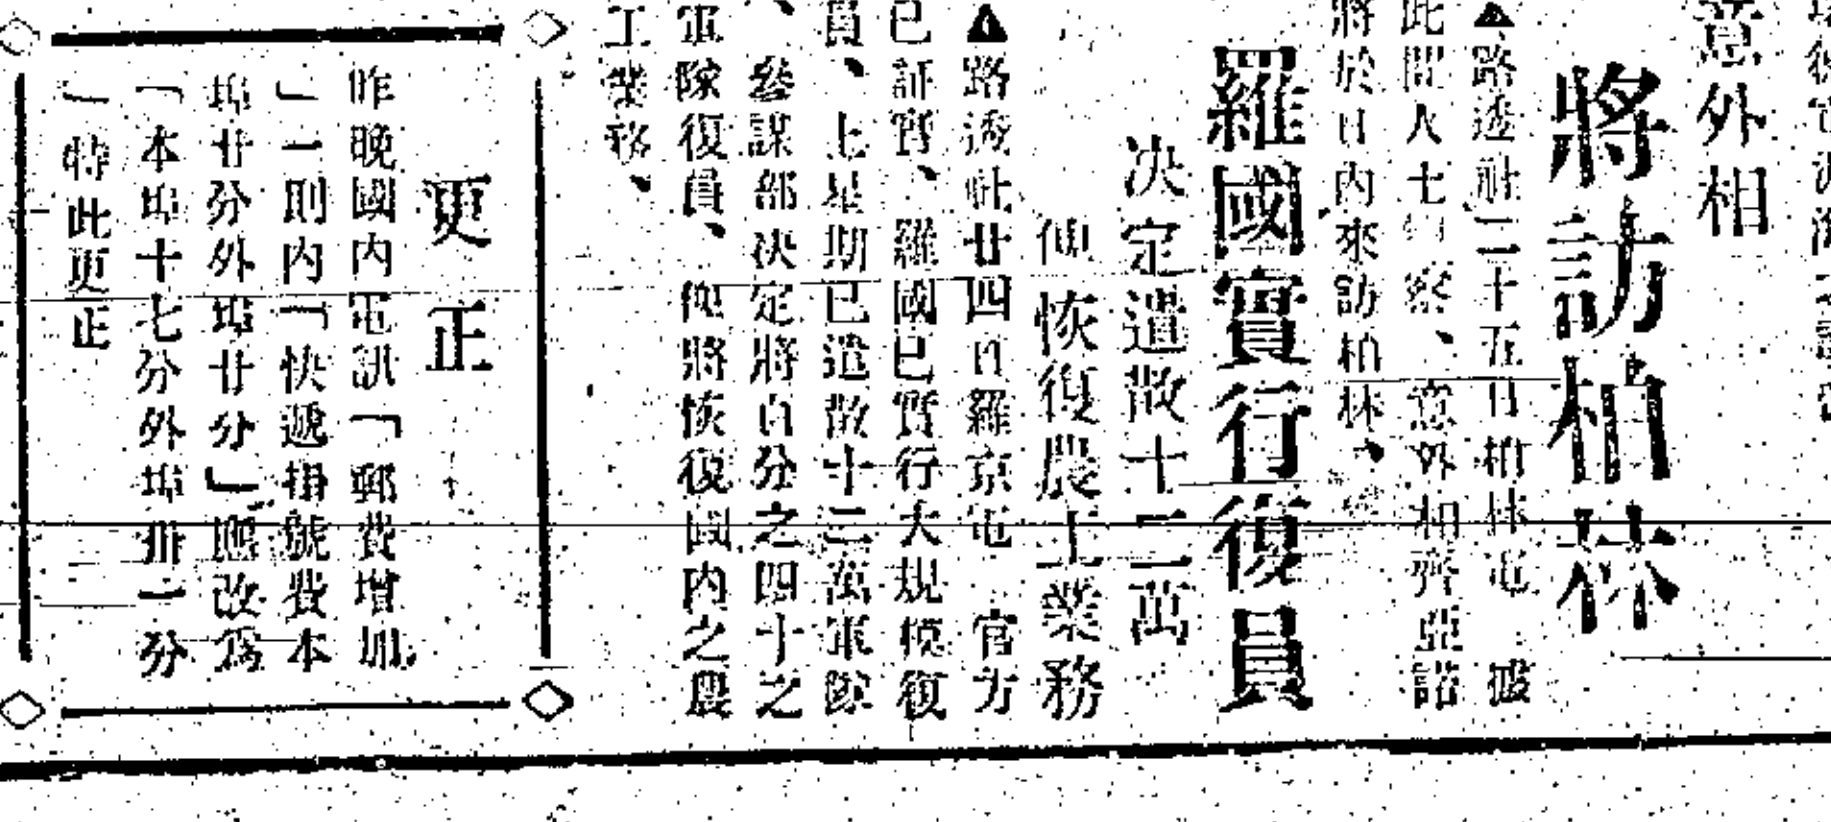 意外相
將訪柏林
▲路透社二十五日柏林電 據
此間人士 察、意外相齊亞諾
將於日內來訪柏林、
羅國實行復員
決定遣散十二萬
俾恢復農工業務
▲路透社廿四日羅京電 官方
已証實、羅國已實行大規模復
員、上星期已遣散十二萬軍隊
、參謀部決定將百分之四十之
軍隊復員、俾將恢復國內之農
工業務、
更正
昨晚國內電訊「郵費增加
」一則內「快遞掛號費本
埠廿分外埠廿分」應改爲
「本埠十七分外埠卅一分
」特此更正